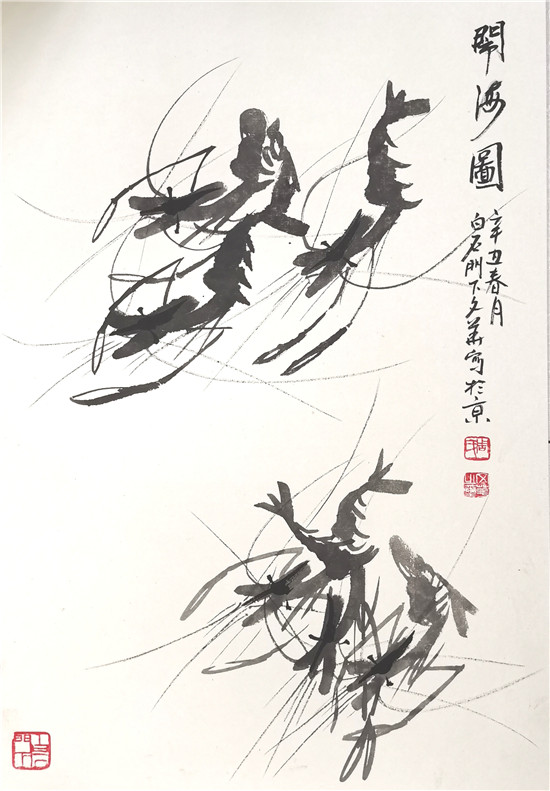 閙海圖
辛丑春月
白石门下文華寫於京